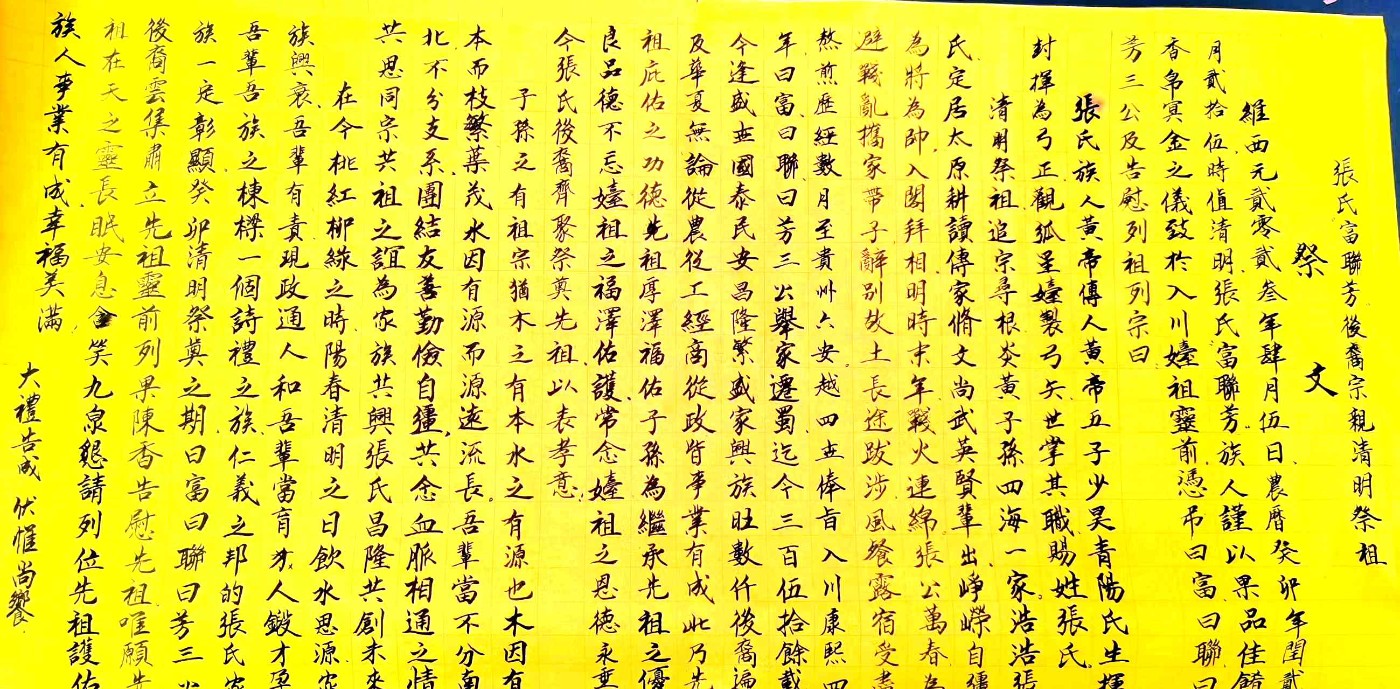 張氏富聯芳後裔宗親清明祭祖
祭文
維西元貳零貳叁年肆月伍日農曆癸卯年閏貳
月貳拾伍時值清明張氏富聯芳族人謹以果品佳餚
香帛冥金之儀致於入川嬑祖靈前憑吊曰富曰聯曰
芳三公及告慰列祖列宗曰
張氏族人黃帝傳人黃帝五子少昊青陽氏生揮
封揮為弓正觀弧星嬑製弓矢世掌其職賜姓張氏
清明祭祖追宗尋根炎黃子孫四海一家浩浩張
氏定居太原耕讀傳家脩文尚武英賢輩出崢嶸自彊
為將為帥入閣拜相明時末年戰火連綿張公萬春為
避戰亂攜家帶子辭別故土長途跋涉風餐露宿受盡
熬煎歷經數月至貴州六安越四世俸旨入川康熙四
年曰富曰聯曰芳三公舉家遷蜀迄今三百伍拾餘載
今逢盛世國泰民安昌隆繁盛家興族旺數仟後裔遍
及華夏無論從農從工經商從政皆事業有成此乃先
祖庇佑之功德先祖厚澤福佑子孫為繼承先祖之優
良品德不忘嬑祖之福澤佑護常念嬑祖之恩德永垂
今張氏後裔齊聚祭奠先祖以表孝意
子孫之有祖宗猶木之有本水之有源也木因有
本而枝繁葉茂水因有源而源遠流長吾輩當不分南
北不分支系團結友善勤儉自彊共念血脈相通之情
共思同宗共祖之誼為家族共興張氏昌隆共創未來
在今桃紅柳綠之時陽春清明之日飲水思源家
族興衰吾輩有責現政通人和吾輩當育才人鍛才孕
吾輩吾族之棟樑一個詩禮之族仁義之邦的張氏家
族一定彰顯癸卯清明祭奠之期曰富曰聯曰芳三公
後裔雲集肅立先祖靈前列果陳香告慰先祖唯願先
祖在天之靈長眠安息含笑九泉懇請列位先祖護佑
族人事業有成幸福美滿
大禮告成伏惟尚饗